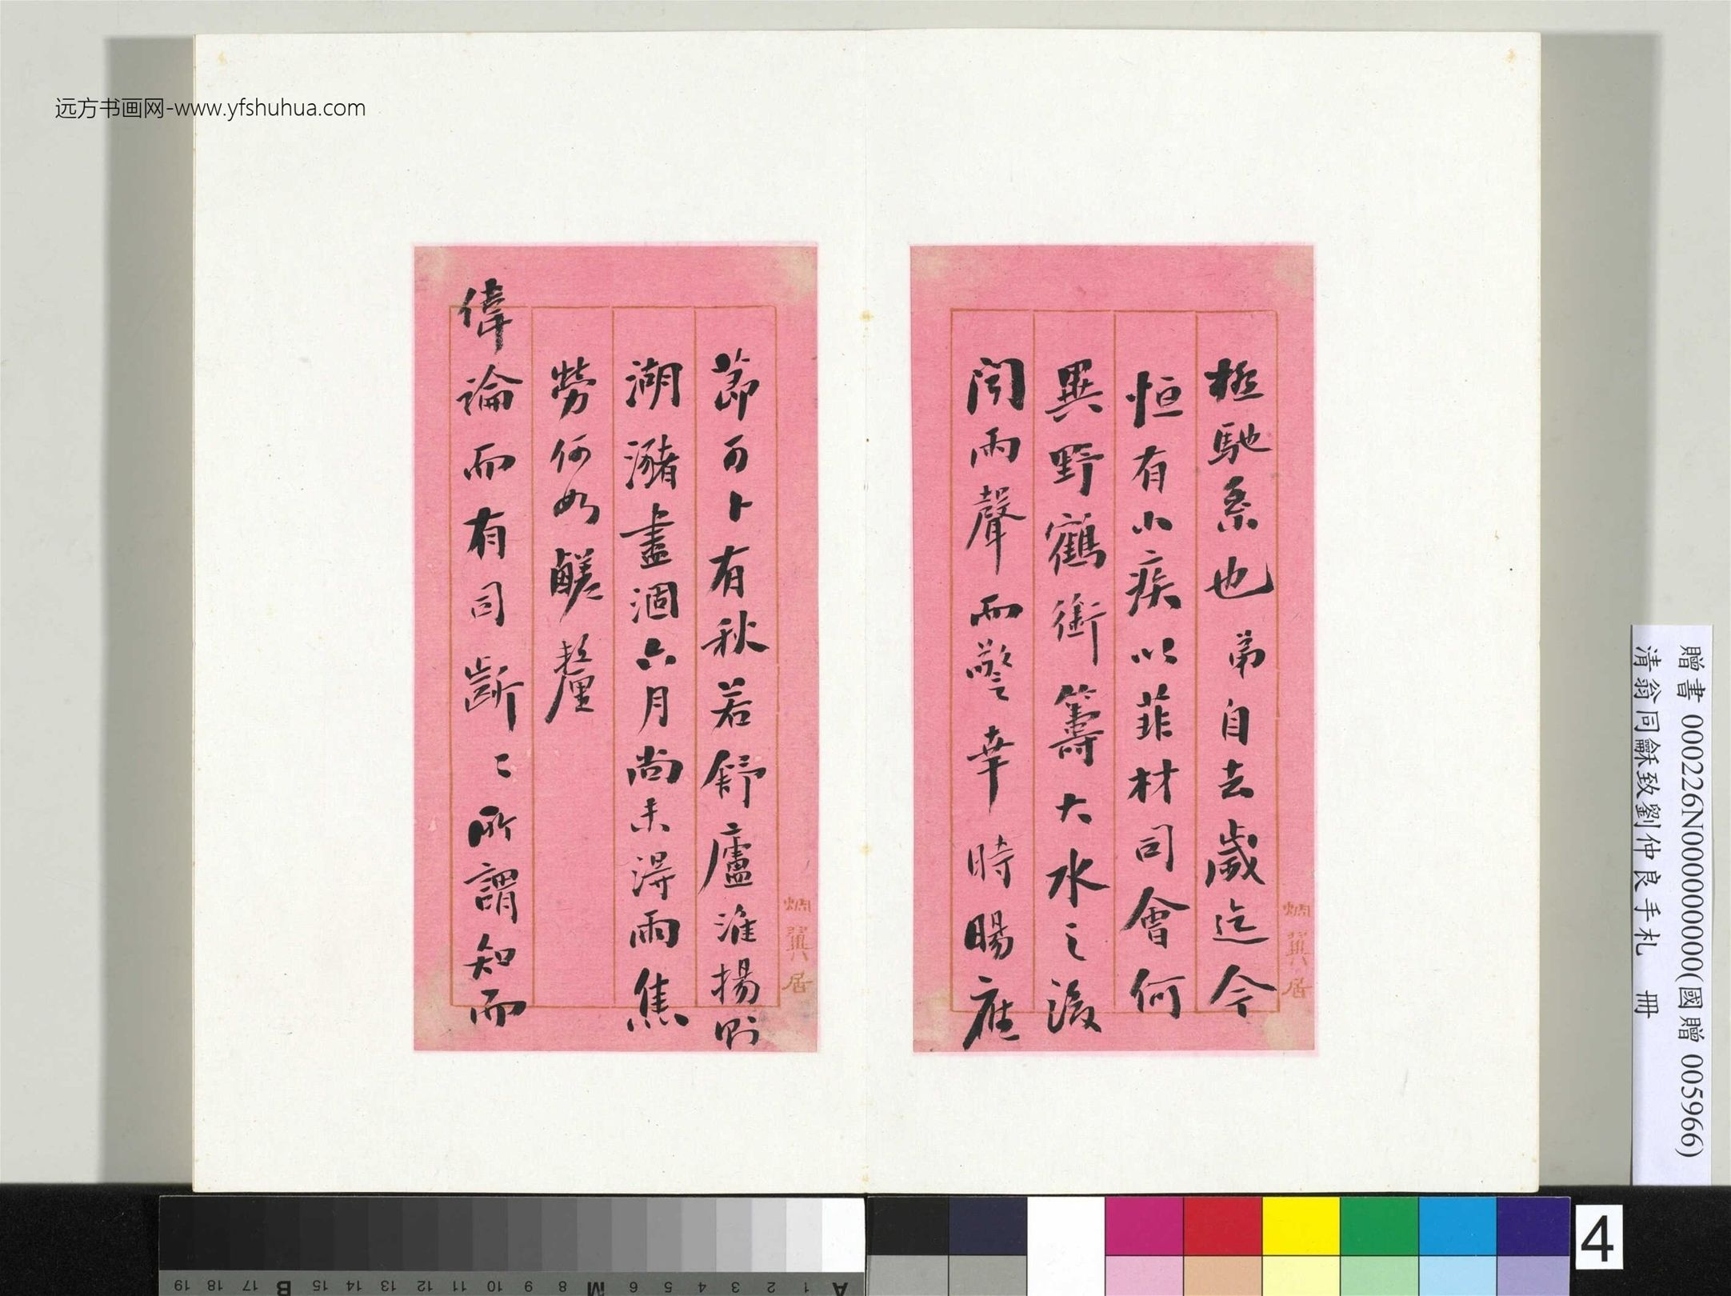 远方书画网-www.yfshuhua.com
極馳系也弟自去歲迄今
恒有小疾以菲材司會何
異野鶴銜籌大水之後
聞雨聲而警幸時暘應
節可卜有秋若舒廬淮揚則
湖瀦盡涸六月尚未得雨焦
勞何如鹺釐
偉論而有同斷〻所謂知而
居
居
贈書 000226N000000000(國贈 005966)
清翁同龢致劉仲良手札 冊
4
A 1 2 3 4 5 6 M 8 9 10 11 12 13 14 15 B 17 18 19